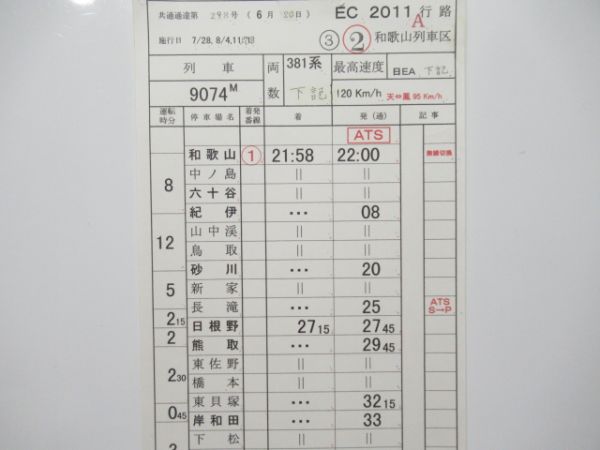 共通通達第 298号 (6月20日) EC 2011A行路
施行日 7/28, 8/4,11 ③ ② 和歌山列車区
列車 両数 381系 最高速度 BEA 下記
9074M 下記 120 Km/h 天⇔鳳 95 Km/h
運転時分 停車場名 着発番線 着 発(通) 記事
ATS
和歌山 ① 21:58 22:00 無線切換
8 中ノ島 || ||
六十谷 || ||
紀伊 ・・・ 08
12 山中渓 || ||
鳥取 || ||
砂川 ・・・ 20
5 新家 || ||
長滝 ・・・ 25 ATS S→P
2 15 日根野 27 15 27 45
2 熊取 ・・・ 29 45
東佐野 || ||
2 30 橋本 || ||
東貝塚 ・・・ 32 15
0 45 岸和田 ・・・ 33
下松 || ||